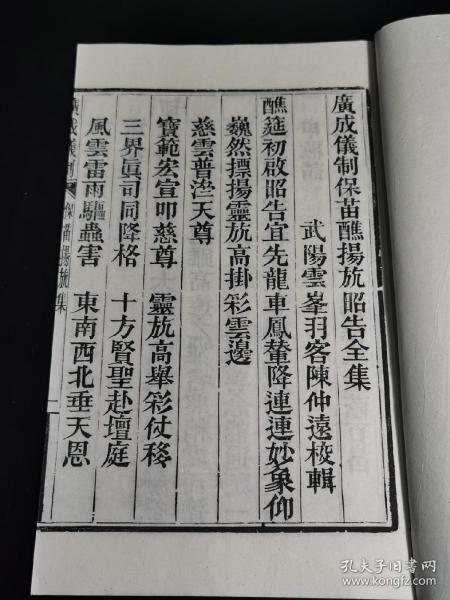 廣成儀制保苗醮揚旂昭告全集
武陽雲峯羽客陳仲遠校輯
醮筵初啟昭告宜先龍車鳳輦降連連妙象仰
巍然摽揚靈旂高掛彩雲邊
慈雲普濟天尊
寶範宏宣叩慈尊 靈旂高舉彩仗移
三界眞司同降格 十方賢聖赴壇庭
風雲雷雨驅蟲害 東南西北垂天恩
廣成儀制 保苗揚旂集 一
孔夫子旧书网
www.kongfz.com